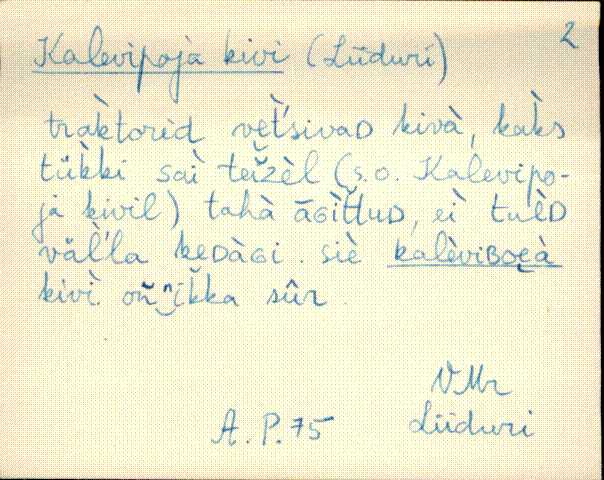 2
Kalevipoja kivi (Liiduri)
traktorìd vèt'sivaD kivà, kàks
tükki saì teižèl (s.o. Kalevipo-
ja kivil) tahà āGìt̆tuD, eì tulèD
väl'la keDàGi. siè kalèviBoea
kivì oň ikka sûr.
VMr
A. P. 75 Liiduri